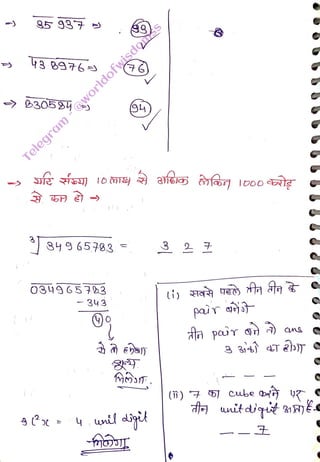 → 85937 ⇒ 93
⇒ 438976 ⇒ 76
→ 830584 ⇒ 94
Telegram - @worldofwisdomss
→ यदि संख्या 10 लाख से अधिक लेकिन 1000 करोड़
से कम हो →
3√34965783 = 3 2 7
034965783
- 343
40
से तो हमेशा
शून्य
मिलेगा
3l²x = 4 unit digit
मिलेगा
(i) सबसे पहले तीन तीन के
pair बनेंगे
तीन pair बने तो ans
3 अंको का होगा
_ _ _
(ii) 7 का cube करने पर
तीन unit digit आता है
_ _ 7